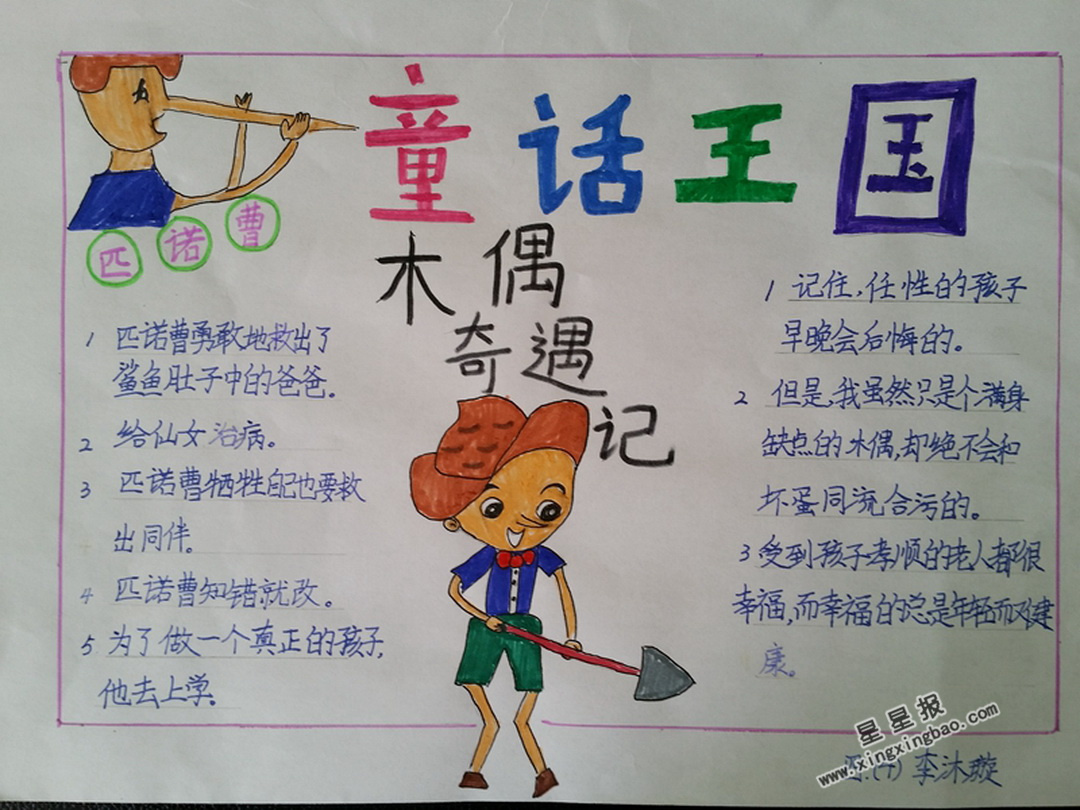 童话王国
匹诺曹
木偶
奇遇
记
1 匹诺曹勇敢地救出了
鲨鱼肚子中的爸爸.
2 给仙女治病。
3 匹诺曹牺牲自己也要救
出同伴。
4 匹诺曹知错就改。
5 为了做一个真正的孩子,
他去上学.
1 记住,任性的孩子
早晚会后悔的。
2 但是,我虽然只是个满身
缺点的木偶,却绝不会和
坏蛋同流合污的。
3 受到孩子孝顺的老人都很
幸福,而幸福的总是年轻而又健
康。
星星报
www.xingxingbao.com
李沐璇